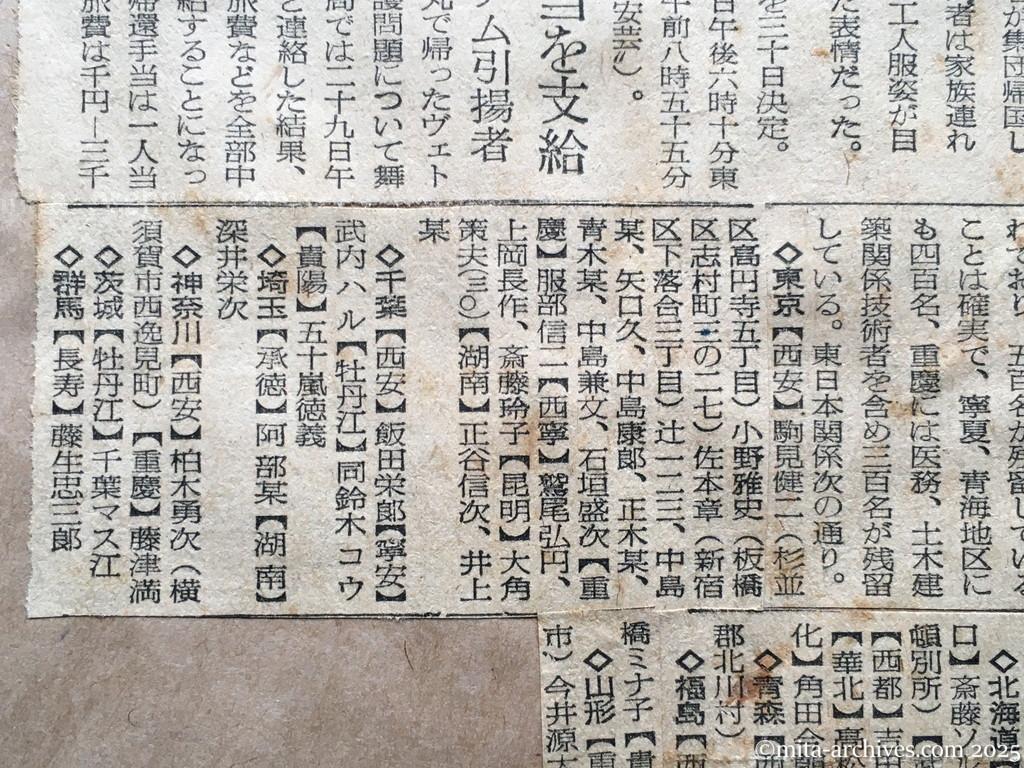 が集団帰国し
者は家族連れ
工人服姿が目
た表情だった。
を三十日決定。
日午後六時十分東
午前八時五十五分
安芸〃）。
ヨを支給
ム引揚者
丸で帰ったヴェト
護問題について舞
間では二十九日午
と連絡した結果、
旅費などを全部中
給することになっ
帰還手当は一人当
旅費は千円―三千
れており、五百名が残留している
ことは確実で、寧夏、青海地区に
も四百名、重慶には医務、土木建
築関係技術者を含め三百名が残留
している。東日本関係次の通り。
◇東京【西安】駒見健二（杉並
区高円寺五丁目）小野雅史（板橋
区志村町三の二七）佐本章（新宿
区下落合三丁目）辻一二三、中島
某、矢口久、中島康郎、正木某、
青木某、中島兼文、石垣盛次【重
慶】服部信二【西寧】鷲尾弘円、
上岡長作、斎藤玲子【昆明】大角
策夫（三〇）【湖南】正谷信次、井上
某
◇千葉【西安】飯田栄郎【寧安】
武内ハル【牡丹江】同鈴木コウ
【貴陽】五十嵐徳義
◇埼玉【承徳】阿部某【湖南】
深井栄次
◇神奈川【西安】柏木勇次（横
須賀市西逸見町）【重慶】藤津満
◇茨城【牡丹江】千葉マス江
◇群馬【長寿】藤生忠三郎
◇北海道
口】斎藤ソル
頓別所）【
【西都】吉田
【華北】高松
化】角田今朝
◇青森【
郡北川村）
◇福島【西
橋ミナ子【貴
◇山形【重
市）今井源太
©mita-archives.com 2025